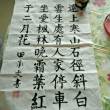 遠上寒山石徑斜白
雲生處有人家停車
坐愛楓林晚霜葉紅
于二月花